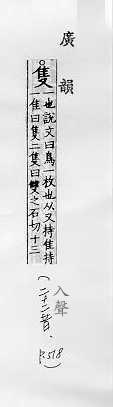 廣韻
隻
一也說文曰鳥一枚也从又持隹持
一隹曰隻二隹曰雙之石切十三
入聲
(二十二昔.
P.518)